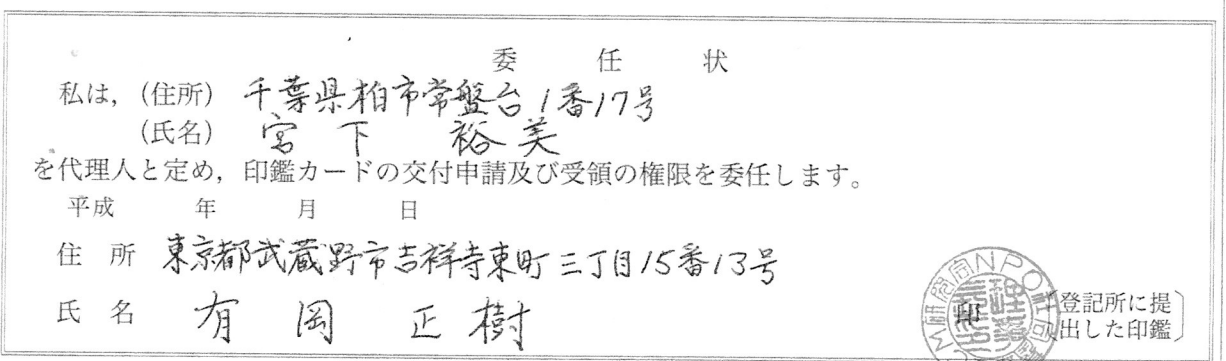 委任状
私は,（住所） 千葉県柏市常盤台1番17号
（氏名） 宮下 裕美
を代理人と定め, 印鑑カードの交付申請及び受領の権限を委任します。
平成 年 月 日
住所 東京都武蔵野市吉祥寺東町三丁目15番13号
氏名 有岡 正樹
印
〔登記所に提出した印鑑〕